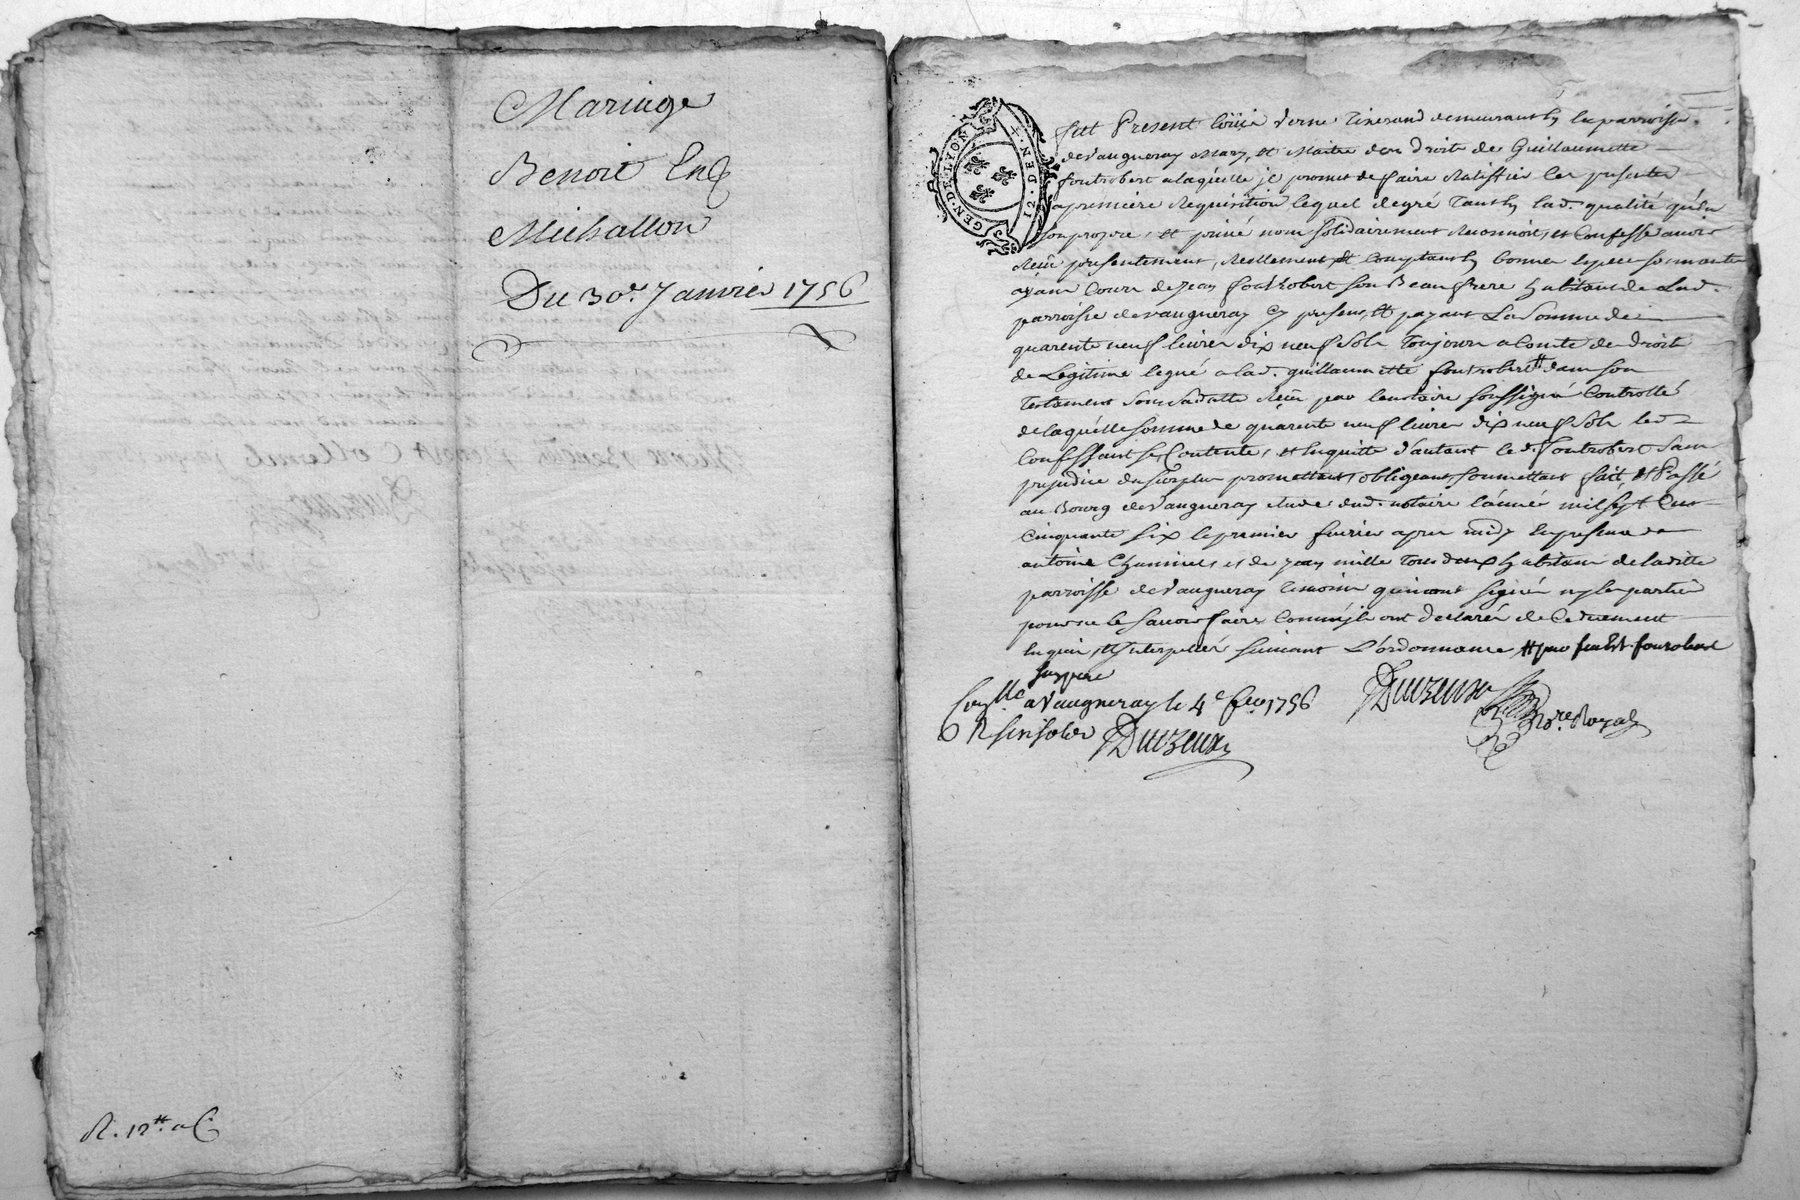 Mariage
Benoit Et
Michallon
Du 30e. Janvier 1756
R. 12tt a C.
GEN. DE LYON
12. DEN.
fut Present Loüis Verne Tixerand demeurant en la parroisse
de Vaugneray Mary, et Maitre des Droits de Guillaumette
fontrobert a laquelle il promet de faire Ratiffier les presentes
a premiere Requisition lequel de gré Tant en lad. qualité qu'en
son propre, et privé nom solidairement Reconnoit, et Confesse avoir
Reçu presentement, Reellement et Comptant en bonnes especes sonnantes
ayant Cours de Jean fontrobert son Beaufrere habitant de Lad.
parroisse de Vaugneray Cy present, et payant La Somme de
quarente neuf livres dix neuf Sols Toujours a Comte des Droits
de Legitime legué a lad. guillaumette fontrobert # dans son
Testament sous sa datte Reçu par le notaire soussigné Controllé
de laquelle somme de quarente neuf livres dix neuf Sols led.
Confessant se Contente, et en quitte d'autant led. fontrobert sans
prejudice du surplus promettant, obligeant, soumettant fait, et Passé
au Bourg de Vaugneray etude dud. notaire l'année mil sept Cent
Cinquante six le premier fevrier apres midy en presence de
antoine et de Jean mille Tous deux habitans de laditte
parroisse de Vaugneray Temoins qui n'ont signés ny les parties
pour ne le savoir faire Comm'ils ont declarés de Ce duement
Enquis, et Interpellés suivant L'ordonnance, # par feu fontrobert
son pere
Conllé a Vaugneray le 4e fev. 1756
R six sols
Nore. Royal